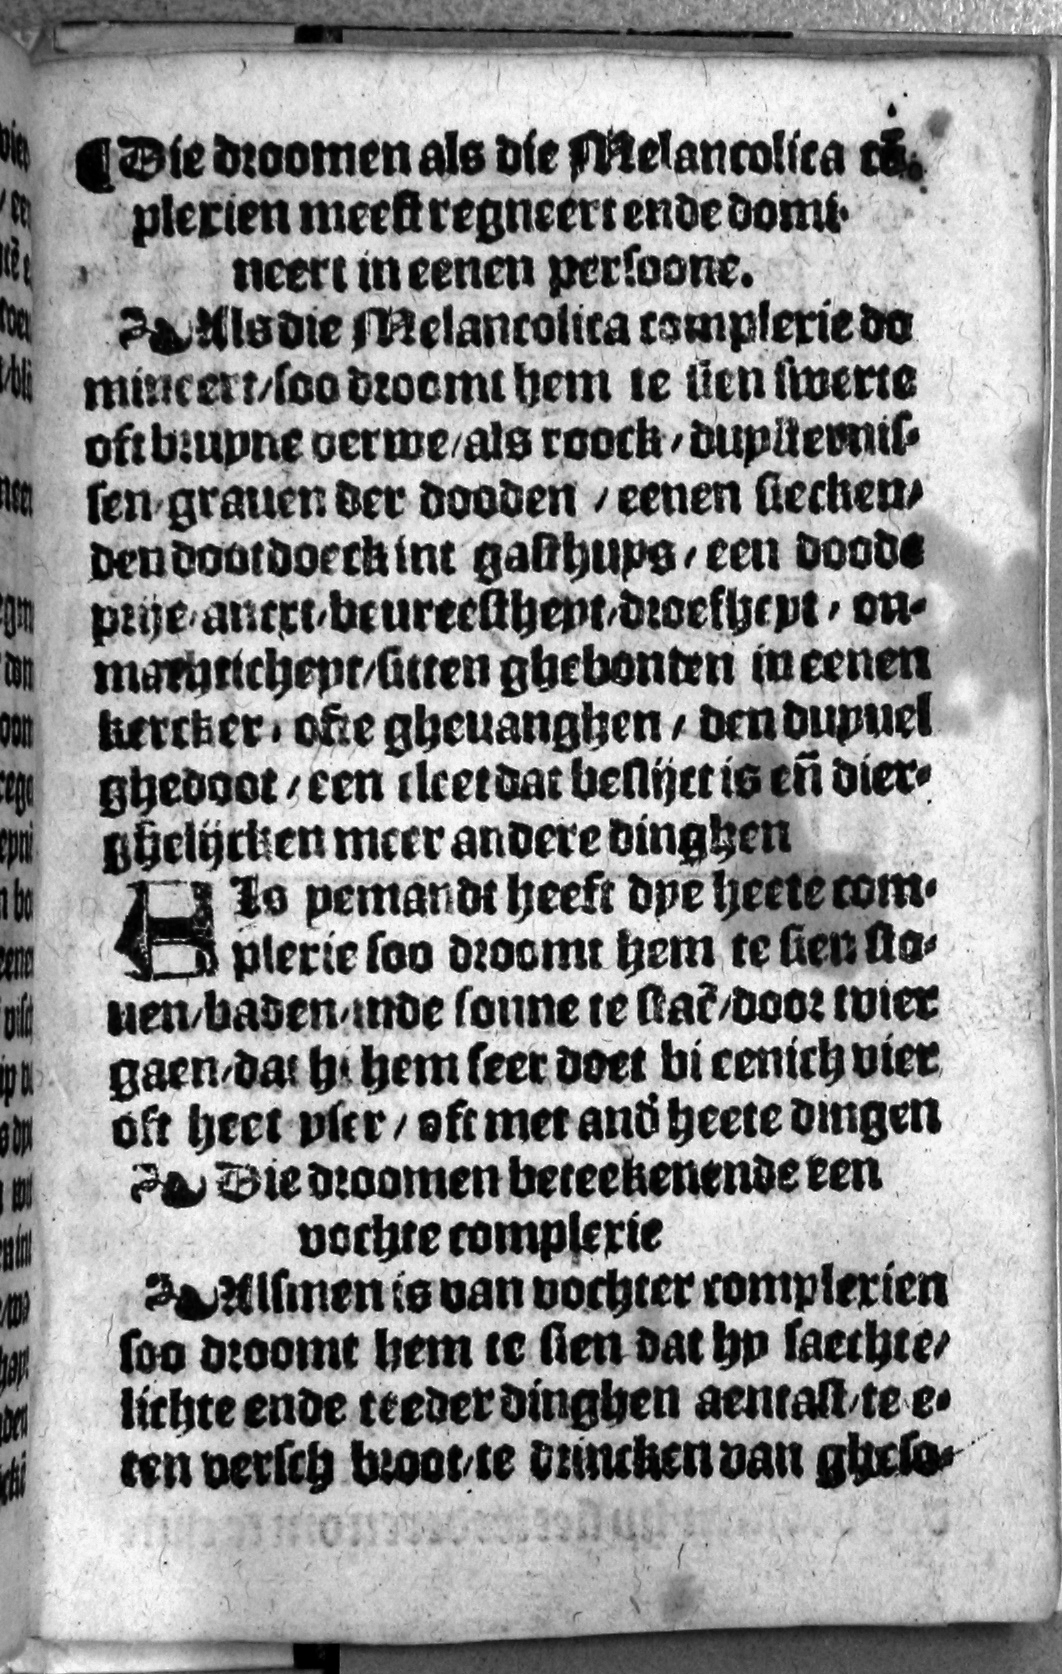 ¶ Die droomen als die Melancolica cō-
plexien meest regneert ende domi-
neert in eenen persoone.
Als die Melancolica complexie do
mineert/soo droomt hem te sien swerte
oft bruyne verwe/als roock/duysternis-
sen/grauen der dooden/eenen siecken/
den dootdoeck int gasthuys/een doode
prije/anext/beureesthept/droefheyt/on-
machticheyt/sitten ghebonden in eenen
kercker, ofte gheuanghen/den duyuel
ghedoot/een cleet dat beslijct is eñ dier-
ghelijcken meer andere dinghen
Als yemandt heeft dye heete com-
plexie soo droomt hem te sien sto-
uen/baden/inde sonne te staē/door tvier
gaen/dat hi hem seer doet bi eenich vier
oft heet yser/oft met and̄ heete dingen
Die droomen beteekenende een
vochte complexie
Alsmen is van vochter complexien
soo droomt hem te sien dat hy saechte/
lichte ende teeder dinghen aentast/te e-
ten versch broot/te drincken van gheso-